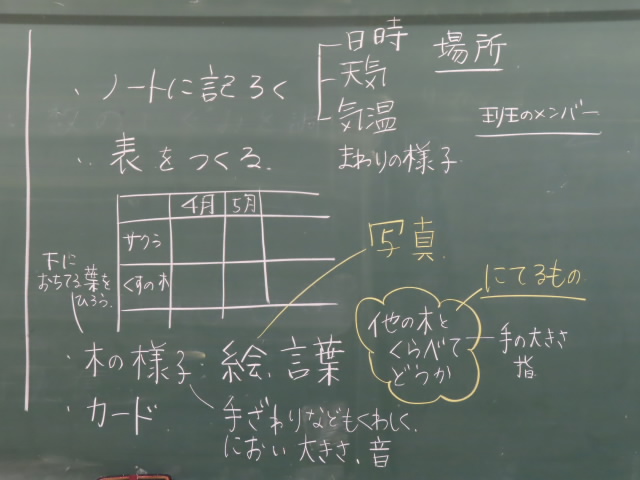 ・ノートに記ろく
日時
天気
気温
まわりの様子
場所
班のメンバー
・表をつくる。
4月 5月
サクラ
くすの木
下に
おちてる葉を
ひろう。
・木の様子:絵、言葉
写真
・カード
手ざわりなどもくわしく、
におい 大きさ、音
他の木と
くらべて
どうか
にてるもの
手の大きさ
指